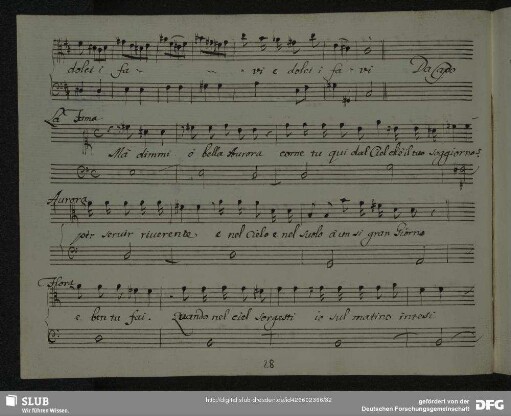 dolci i fa - - vi e dolci i fa - vi Da Capo
La Fama
Mà dimmi ò bella Aurora come tu qui dal Ciel ch'è il tuo soggiorno?
Aurora
per servir riverente e nel Cielo e nel suolo à un sì gran Giorno
Flora
e ben tu fai. Quando nel ciel sorgesti io sul matino intesi
28
SLUB
Wir führen Wissen.
http://digital.slub-dresden.de/id426602366/32
gefördert von der
Deutschen Forschungsgemeinschaft
DFG